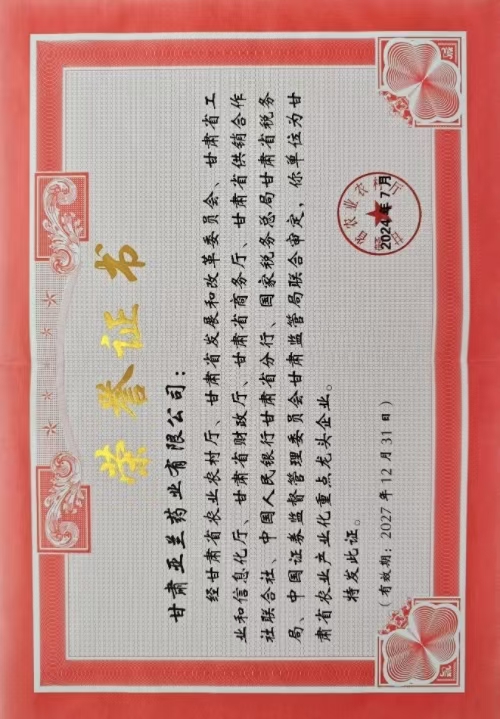 荣誉证书
甘肃亚兰药业有限公司：
经甘肃省农业农村厅、甘肃省发展和改革委员会、甘肃省工
业和信息化厅、甘肃省财政厅、甘肃省商务厅、甘肃省供销合作
社联合社、中国人民银行甘肃省分行、国家税务总局甘肃省税务
局、中国证券监督管理委员会甘肃监管局联合审定，你单位为甘
肃省农业产业化重点龙头企业。
特发此证。
2024年7月
（有效期：2027年12月31日）